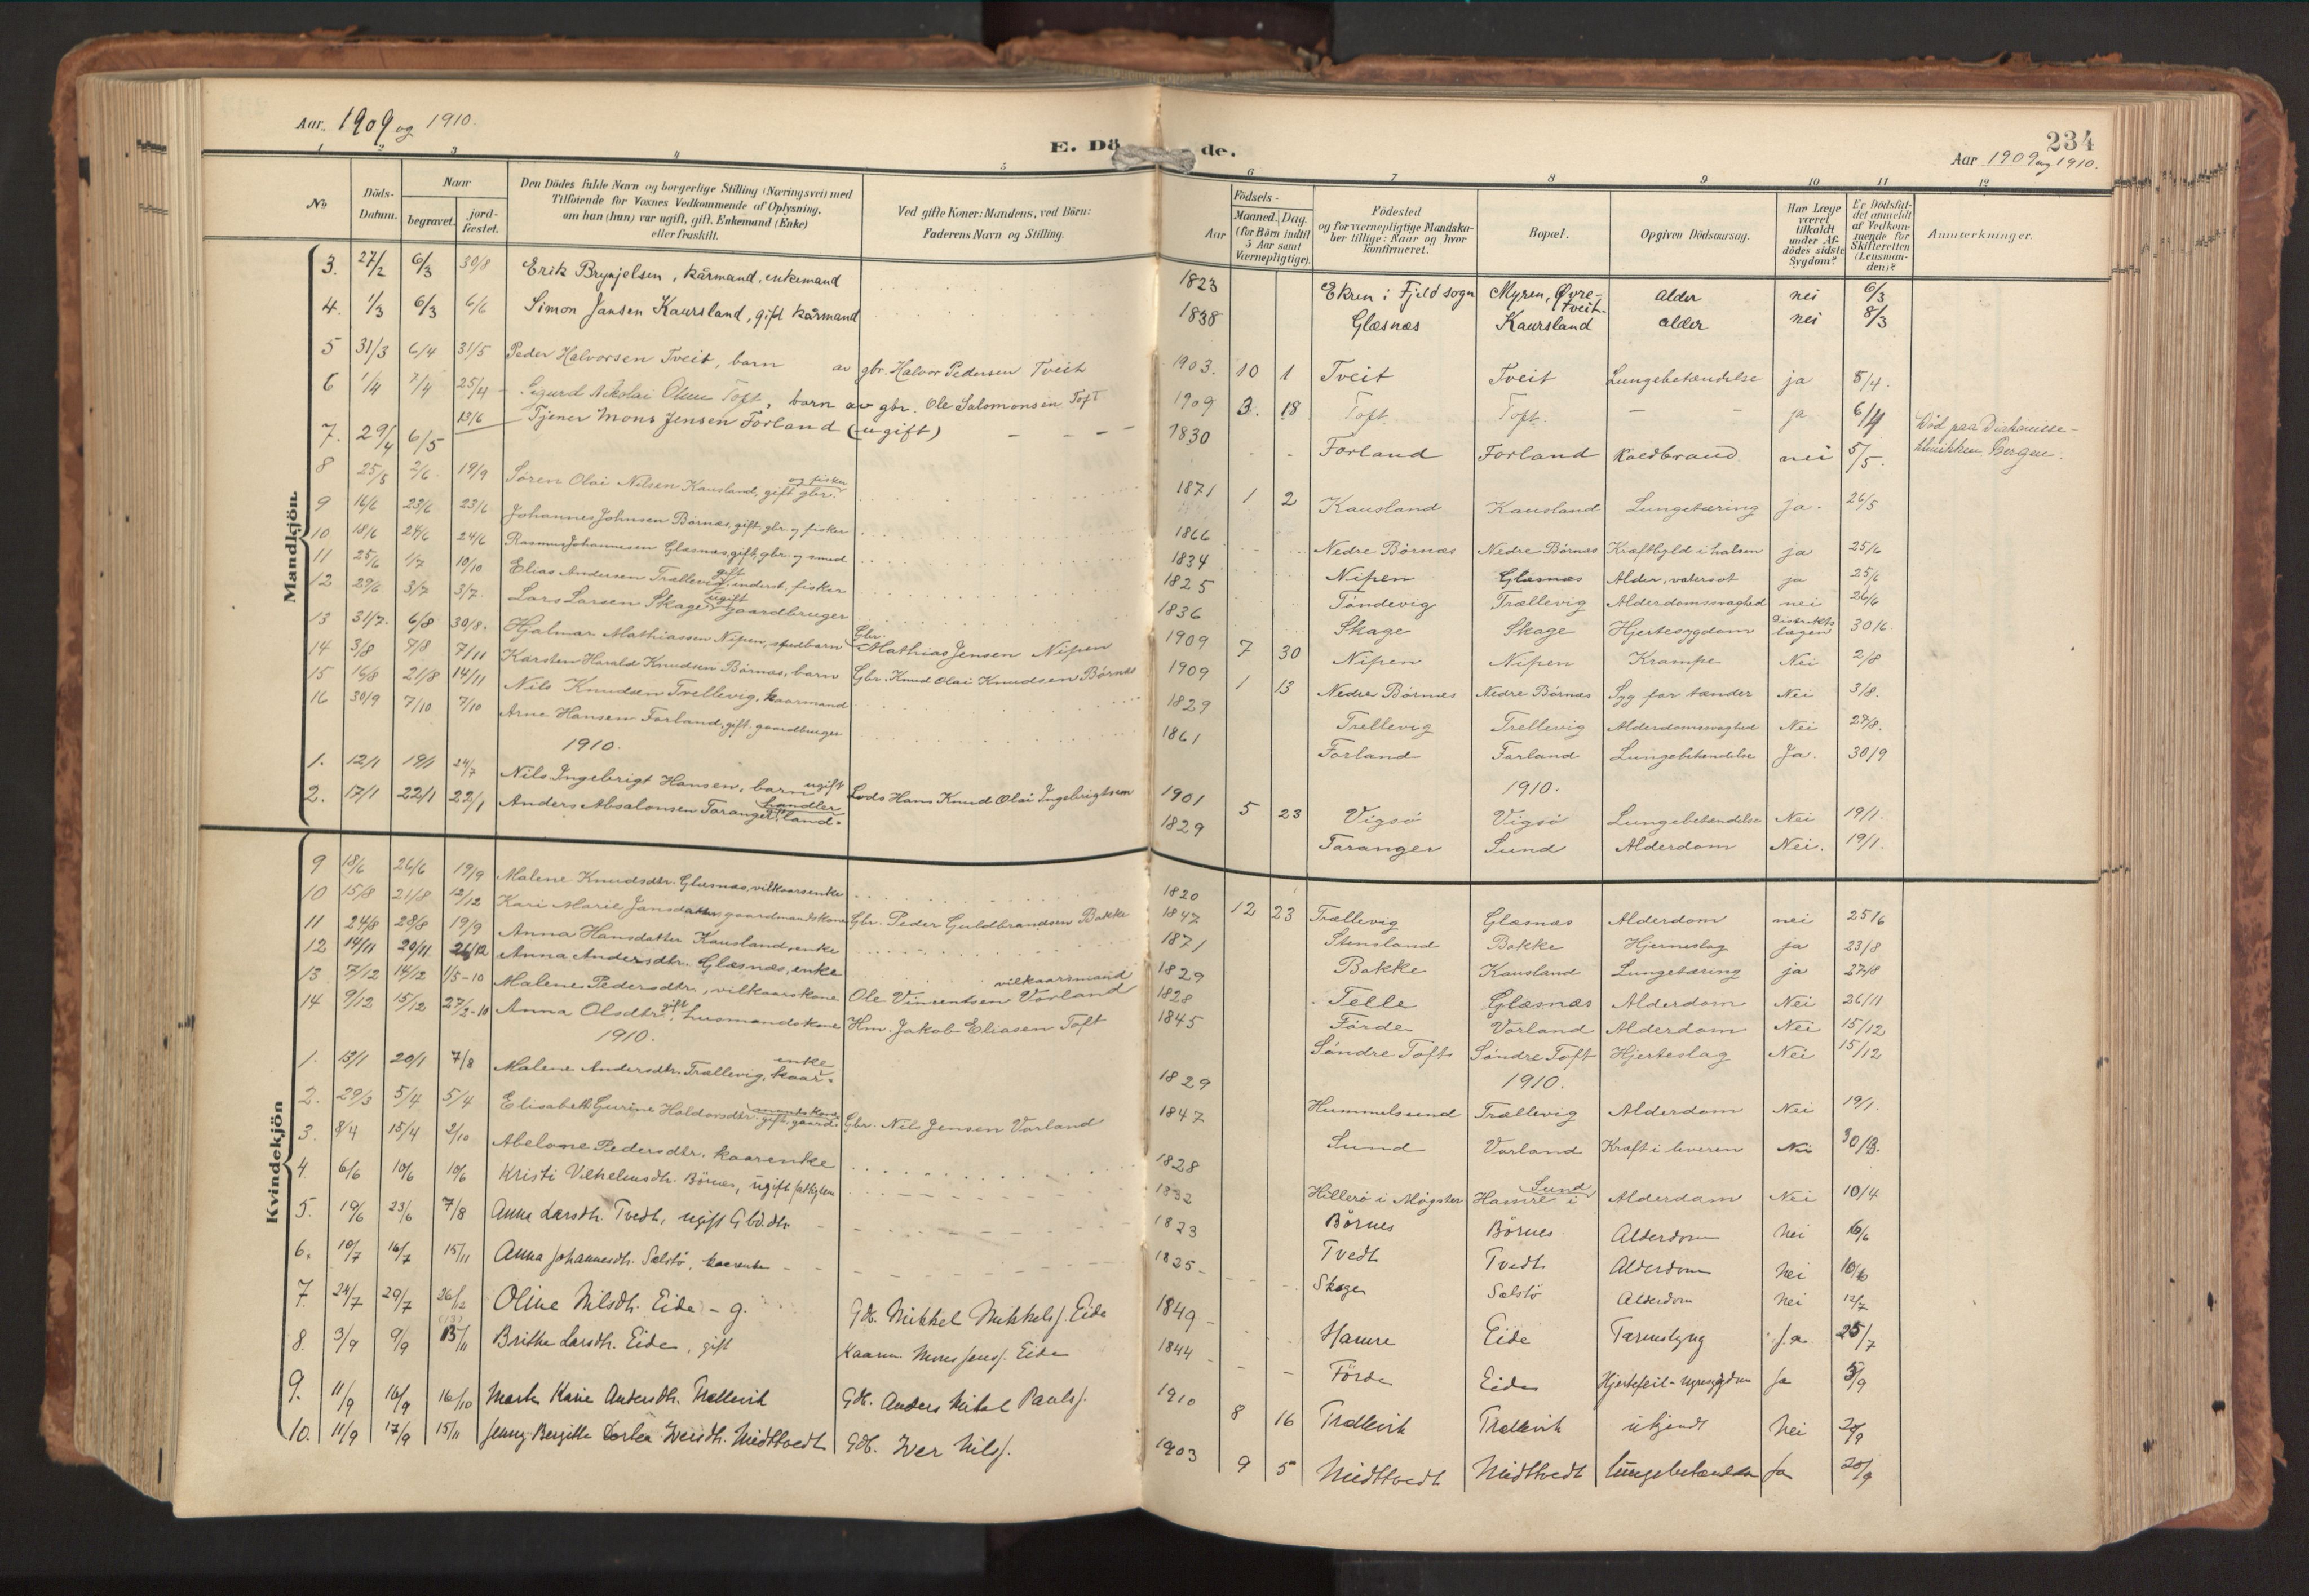 Aar. 1909 og 1910.
E. Dö de.
234
Aar 1909 og 1910.
1 2 3 4 5 6 7 8 9 10 11 12
No
Döds-Datum.
Naar
begravet.
jord-fæstet.
Den Dödes fulde Navn og borgerlige Stilling (Næringsvei) med
Tilföiende for Voxnes Vedkommende af Oplysning,
om han (hun) var ugift, gift, Enkemand (Enke)
eller fraskilt.
Ved gifte Koner: Mandens, ved Börn:
Faderens Navn og Stilling.
Födsels-
Aar
Maaned. Dag.
(for Börn indtil
5 Aar samt
Værnepligtige).
Födested
og for værnepligtige Mandska-
ber tillige: Naar og hvor
konfirmeret.
Bopæl.
Opgiven Dödsaarsag.
Har Læge
været
tilkaldt
under Af-
dödes sidste
Sygdom?
Er Dödsfal-
det anmeldt
af Vedkom-
mende for
Skifteretten
(Lensman-
den)?
Anmærkninger.
Mandkjön.
3. 27/2 6/3 30/8 Erik Brynjelsen, kårmand, enkemand 1823 Ekren i Fjeld sogn Myren, Øvre-Tveit. alder nei 6/3
4. 1/3 6/3 6/6 Simon Jansen Kaursland, gift kårmand 1838 Glæsnæs Kaursland alder nei 8/3
5 31/3 6/4 31/5 Peder Halvorsen Tveit, barn av gbr. Halvor Pedersen Tveit 1903. 10 1 Tveit Tveit Lungebetændelse ja 5/4.
6 1/4 7/4 25/4 Sigurd Nikolai Olsen Toft, barn av gbr. Ole Salomonsen Toft 1909 3. 18 Toft. Toft. — — ja 6/4
7. 29/4 6/5 13/6 Tjener Mons Jensen Forland (ugift) 1830 Forland Forland Koldbrand nei 5/5. Död paa Diakonisse-klinikken, Bergen.
8 25/5 2/6 19/9 Sören Olai Nilsen Kausland, gift gbr. og fisker 1871 1 2 Kausland Kausland Lungetæring ja. 26/5
9 16/6 23/6 23/6 Johannes Johnsen Börnæs, gift, gbr. og fisker 1866 Nedre Börnæs Nedre Börnæs Kræftbyld i halsen ja 25/6
10 18/6 24/6 24/6 Rasmus Johannesen Glæsnæs, gift, gbr. og smed 1834 Nipen Glæsnæs Alder, vatersot ja 25/6
11 25/6 1/7 10/10 Elias Andersen Trællevig, gift inderst, fisker 1825 Töndevig Trællevig Alderdomssvaghed nei 26/6
12 29/6 3/7 3/7 Lars Larsen Skage, ugift gaardbruger 1836 Skage Skage Hjertesygdom Distriktslægen 30/6.
13 31/7. 6/8 30/8. Hjalmar Mathiassen Nipen, spedbarn Gbr. Mathias Jensen Nipen 1909 7 30 Nipen Nipen Krampe Nei 2/8
14 3/8 7/8 7/11 Karsten Harald Knudsen Börnæs, barn Gbr. Knud Olai Knudsen Börnæs 1909 1 13 Nedre Börnæs Nedre Börnæs Syg for tænder Nei 3/8.
15 16/8 21/8 14/11 Nils Knudsen Trellevig, kaarmand 1829 Trellevig Trellevig Alderdomssvaghed Nei 27/8.
16 30/9 7/10 7/10 Arne Hansen Forland, gift, gaardbruger 1861 Forland Forland Lungebetændelse Ja. 30/9
1910. 1910.
1. 12/1 19/1 24/7 Nils Ingebrigt Hansen, barn ugift Lods Hans Knud Olai Ingebrigtsen 1901 5 23 Vigsö Vigsö Lungebetændelse Nei 19/1.
2. 17/1 22/1 22/1 Anders Absalonsen Taranger, gift land-handler 1829 Taranger Sund Alderdom Nei. 19/1.
Kvindekjön
9 18/6 26/6 19/9 Malene Knudsdtr. Glæsnæs, vilkaarsenke 1820 12 23 Trællevig Glæsnæs Alderdom nei 25/6
10 15/8 21/8 12/12 Kari Marie Jansdatter, gaardmandskone Gbr. Peder Guldbrandsen Bakke 1847 Stensland Bakke Hjerneslag ja 23/8
11 24/8 28/8 19/9 Anna Hansdatter Kausland, enke 1871 Bakke Kausland Lungetæring ja 27/8
12 14/11 20/11 26/12 Anna Andersdtr. Glæsnæs, enke 1829 Telle Glæsnæs Alderdom Nei 26/11
13 7/12 14/12 1/5-10 Malene Pedersdtr., vilkaarskone Ole Vincentsen Vorland vilkaarsmand 1828 Förde Vorland Alderdom Nei 15/12
14 9/12 15/12 27/2-10 Anna Olsdtr. gift, husmandskone Hm. Jakob Eliasen Toft 1845 Söndre Toft Söndre Toft Hjerteslag Nei 15/12
1910. 1910.
1. 13/1 20/1 7/8 Malene Andersdtr. Trællevig, kaar-enke 1829 Hummelsund Trællevig Alderdom Nei 19/1.
2. 29/3 5/4 5/4 Elisabeth Gurine Haldorsdtr. gift, gaard-mandskone Gbr. Nils Jensen Vorland 1847 Sund Vorland Kræft i leveren Nei 30/3.
3. 8/4 15/4 2/10 Abelone Pedersdtr. kaarenke 1828 Hillerö i Mögster Hamre i Sund Alderdom Nei 10/4
4. 6/6 10/6 10/6 Kristi Vilhelmsdtr. Börnes, ugift fattiglem 1832 Börnes Börnes Alderdom Nei 10/6
5. 19/6 23/6 7/8 Anna Larsdtr. Tvedt, ugift Gbd.dtr. 1823 Tvedt Tvedt Alderdom Nei
6. 10/7 16/7 15/11 Anna Johannesdtr. Sælstö, kaarenke 1835 Skoge Selstö Alderdom Nei 12/7
7. 24/7 29/7 26/12 Oline Nilsdtr. Eide - g. Gdb. Mikkel Mikkels. Eide 1849 Hamre Eide Tarmslyng Ja 25/7
8. 3/9 9/9 13/11 Brithe Larsdtr. Eide, gift Kaarm. Mons Jens. Eide 1844 Förde Eide Hjertefeil - nyresygdom Ja 5/9
9. 11/9 16/9 16/10 Marta Karine Andersdtr. Trællevik Gdb. Anders Mikal Pauls. 1910 8 16 Trællevik Trællevik ukjendt Nei 20/9
10. 11/9 17/9 15/11 Jenny Bergitte Dorthea Iversdtr. Midttvedt Gdb. Iver Nils. 1903 9 5 Midttvedt Midttvedt lungebetændelse Ja 20/9